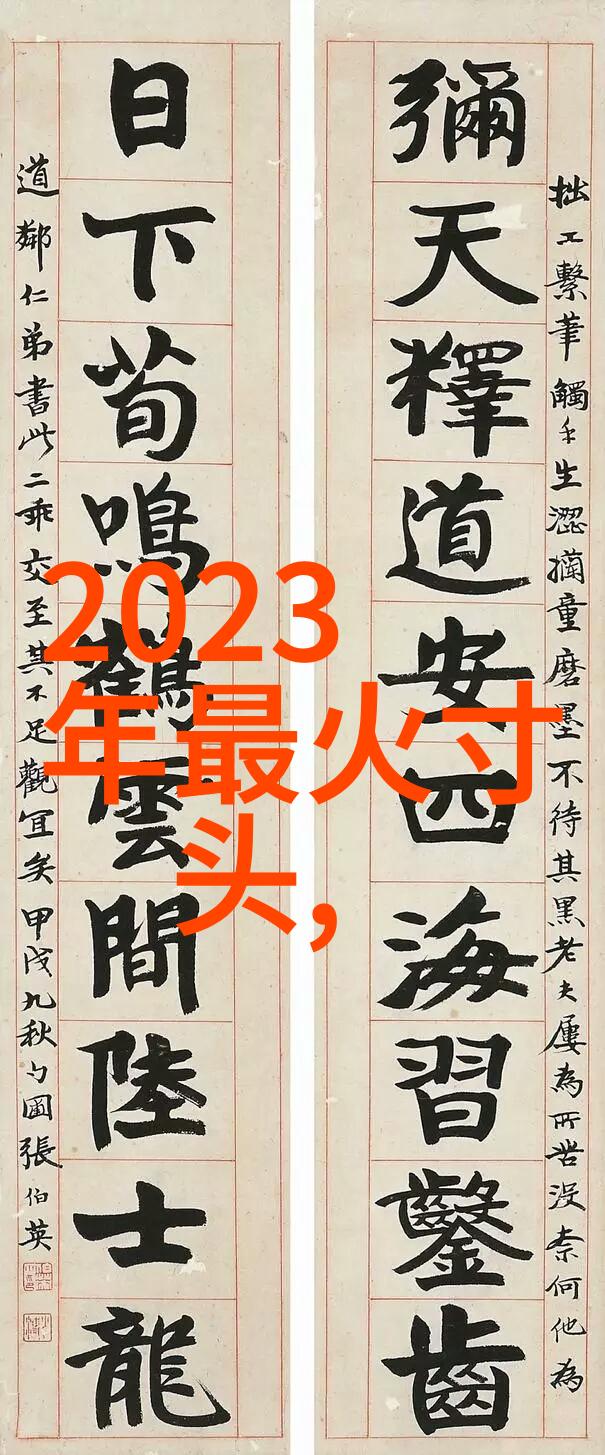 拙工繫筆觸手生澀童磨墨不待其黑老夫屢為所苦沒柰何他為
彌天釋道安四海習鑿齒
日下荀鳴鶴雲間陸士龍
道鄰仁弟書此二乖交至其不足觀宜矣甲戌九秋勺圃張伯英
2023
年最火寸
头,